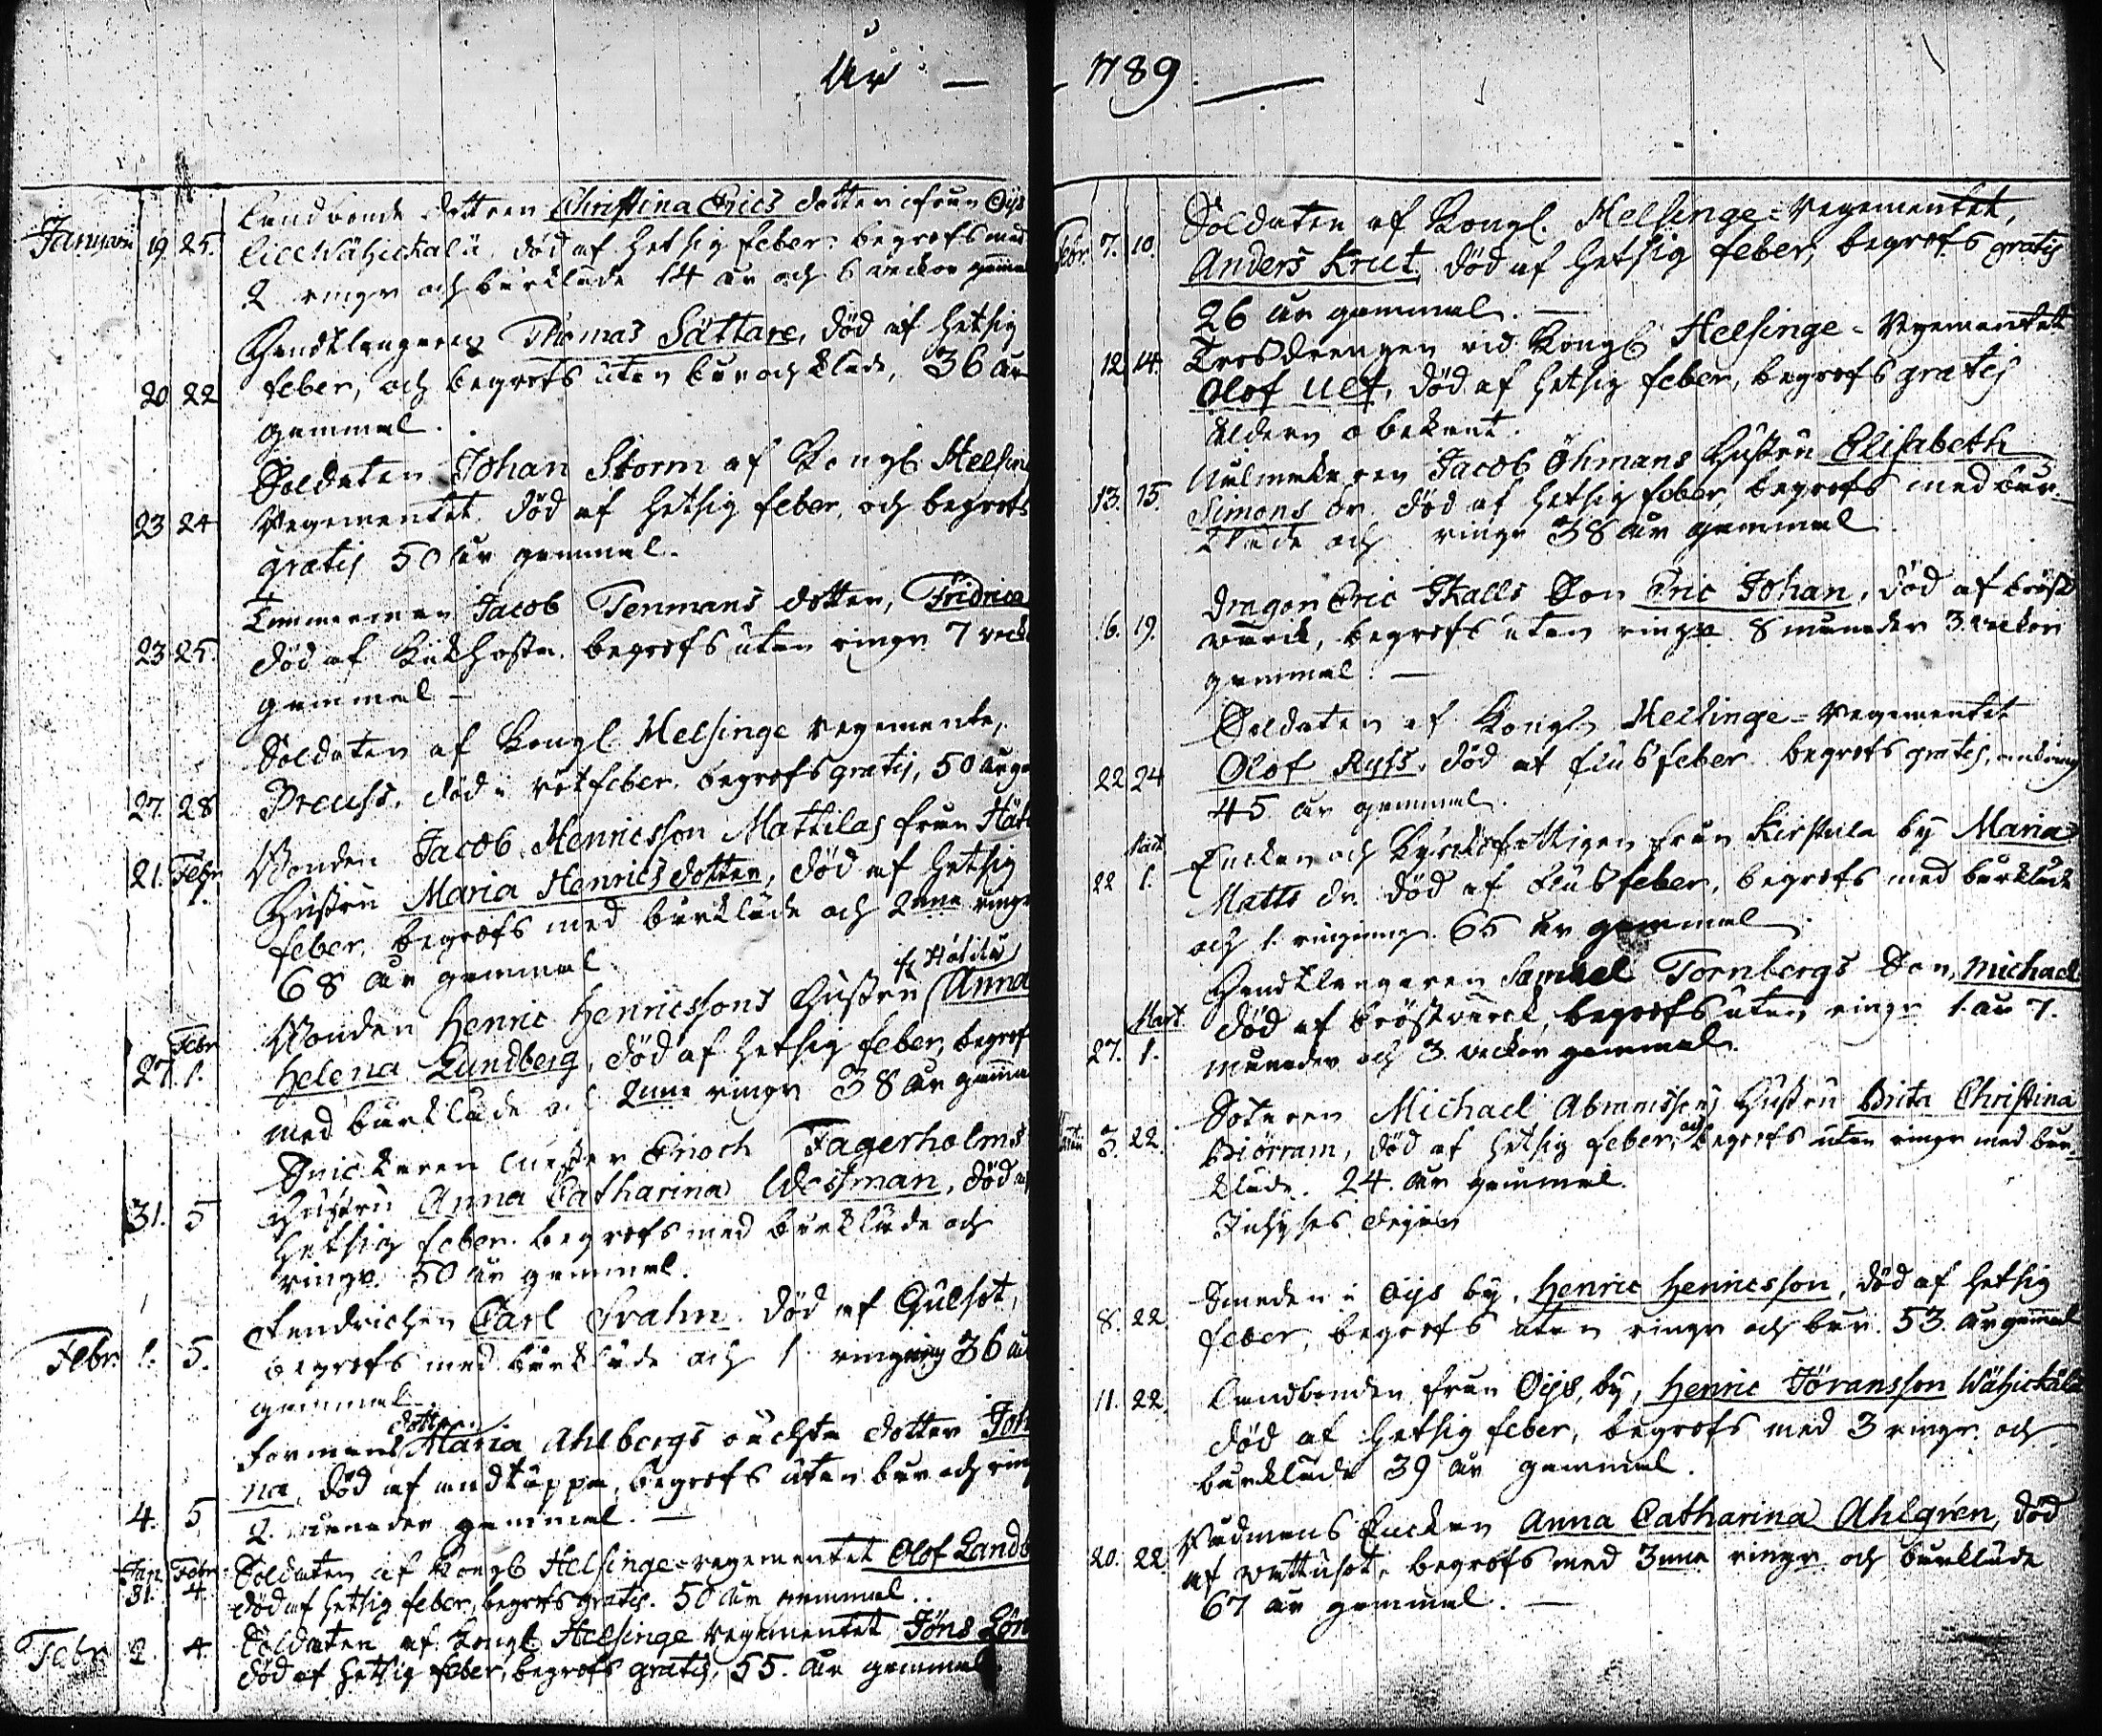 År — 1789.
Januarii 19. 25. Landbonde dottren Christina Erics dotter ifrån Öijs
död af hetsig feber. begrofs med
2 ringr och bårkläde 14 år och 6 veckor gamma
Handtlangaren Thomas Sättare, död af hetsig
20 22 feber, och begrofs utan bår och kläde, 36 år
gammal.
Soldaten Johan Storm af Kongl. Helsing
23 24 Regementet. död af hetsig feber, och begrofs
gratis 50 år gammal.
Timmerman Jacob Tenmans dotter, Fridrica
23 25. död af Kikhosta. begrofs utan ringr. 7 veck
gammal —
Soldaten af Kongl. Helsinge regemente,
27. 28 Preuss. död i rötfeber. begrofs gratis, 50 år ga
Bonden Jacob Henricsson Mattilas från
21. Febr 1. Hustru Maria Henricsdotter, död af hetsig
feber. begrofs med bårkläde och 2nne ringr
68 år gammal
Bonden Henric Henricssons Hustru Anna
27. Febr 1. Helena Lundberg, död af hetsig feber, begrof
med bårkläde och 2nne ringr 38 år gamma
Snickaren mäster Enoch Fagerholms
31. 5 Hustru Anna Catharina Wessman, död af
hetsig feber. begrofs med bårkläde och
ringr. 50 år gammal.
Fendrichen Carl Svahn. död af Gulsot,
Febr. 1. 5. begrofs med bårkläde och 1 ringning 36 år
gammal.
dotter
Formans Maria Ahlbergs oächta dotter Joh
na, död af andtäppa, begrofs utan bår och ring
4. 5 2. månader gammal. —
Jan. 31. Febr 4. Soldaten af Kongl. Helsinge-regementet Olof Landb
död af hetsig feber, begrofs gratis. 50 år gammal.
Febr. 2. 4. Soldaten af Kongl. Helsinge regementet Jöns Lön
död af hetsig feber, begrofs gratis, 55. år gammal
Febr. 7. 10. Soldaten af Kongl. Helsinge-regementet,
Anders Krut. död af hetsig feber, begrofs gratis
26 år gammal. —
12 14. Trossdrengen vid Kongl. Helsinge-Regementet
Olof Ulf, död af hetsig feber, begrofs gratis
åldern obekant.
Jacob Öhmans Hustru Elisabeth
13. 15. Simons dr. död af hetsig feber, begrofs med bår-
kläde och ringr 38 år gammal
Dragon Eric Skalls Son Eric Johan, död af bröst
16. 19. värck, begrofs utan ringr. 8 månader 3. veckor
gammal. —
Soldaten af Kongl. Helsinge-Regementet
22 24 Olof Russ. död af flusfeber begrofs gratis,
45 år gammal.
Enckan och Kyrckofattigen från Kirstula by Maria
22 Mart 1. Matts dr. död af flusfeber, begrofs med bårkläde
och 1. ringning. 65 år gammal
Handtlangaren Samuel Tornbergs Son Michael
27. Mart 1. död af bröstvärck, begrofs utan ringr 1. år 7.
månader och 3. veckor gammal.
Michael Abramssons Hustru Brita Christina
3. 22. Biörram, död af hetsig feber, och begrofs utan ringr med bår-
kläde. 24. år gammal.
Smeden i Öijs by. Henric Henricsson, död af hetsig
8. 22. feber, begrofs utan ringr och bår. 53. år gammal
11. 22. Landbonden från Öijs, by, Henric Jöransson Wähickälä
död af hetsig feber, begrofs med 3 ringr. och
bårkläde 39 år gammal.
Rådmans Enckan Anna Catharina Ahlgrén, död
20. 22. af vattusot, begrofs med 3nne ringr och bårkläde
67 år gammal. —